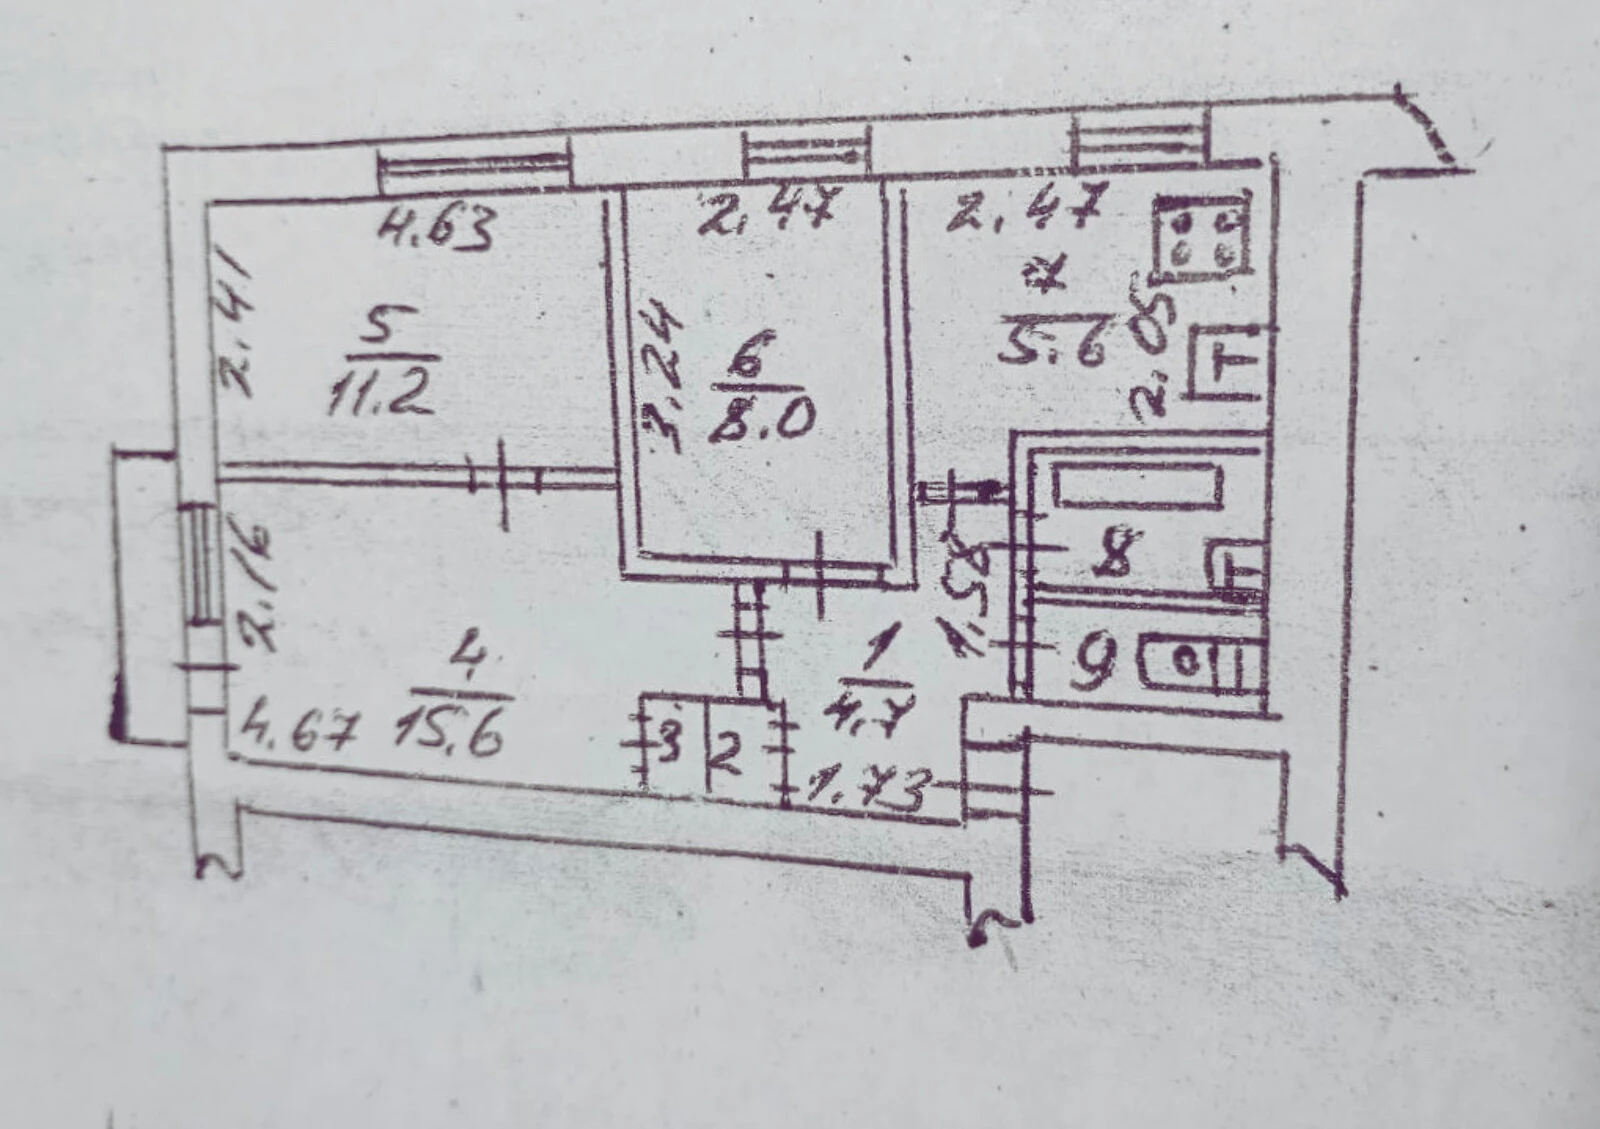 4.63
2.47
2.47
2.41
5
11.2
3.24
6
8.0
7
5.6
2.05
2.16
4
15.6
4.67
3
2
1
4.7
1.73
1.58
8
9